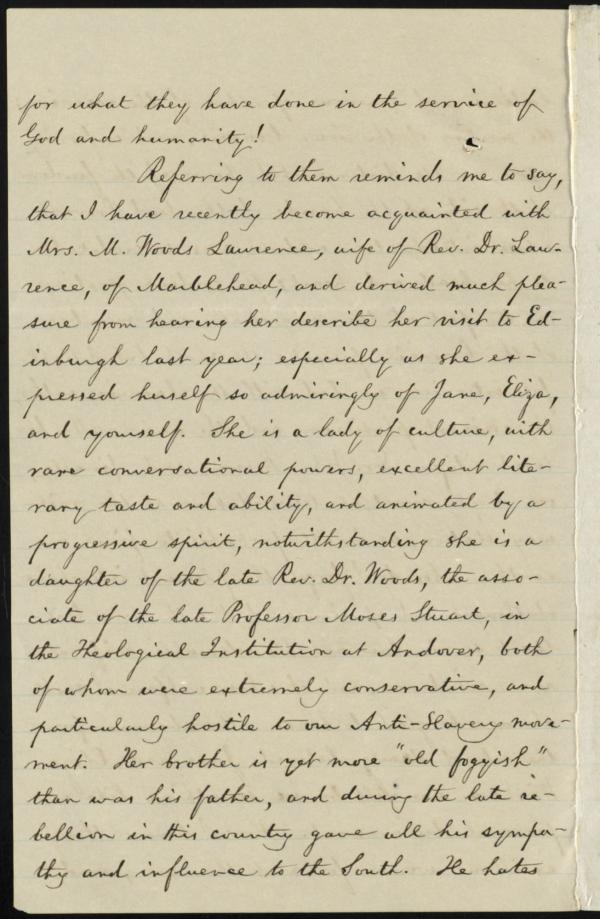 for what they have done in the service of
God and humanity!
Referring to them reminds me to say,
that I have recently become acquainted with
Mrs. M. Woods Lawrence, wife of Rev. Dr. Law-
rence, of Marblehead, and derived much plea-
sure from hearing her describe her visit to Ed-
inburgh last year; especially as she ex-
pressed herself so admiringly of Jane, Eliza,
and yourself. She is a lady of culture, with
rare conversational powers, excellent lite-
rary taste and ability, and animated by a
progressive spirit, notwithstanding she is a
daughter of the late Rev. Dr. Woods, the asso-
ciate of the late Professor Moses Stuart, in
the Theological Institution at Andover, both
of whom were extremely conservative, and
particularly hostile to our Anti-Slavery move-
ment. Her brother is yet more "old fogyish"
than was his father, and during the late re-
bellion in this country gave all his sympa-
thy and influence to the South. He hates